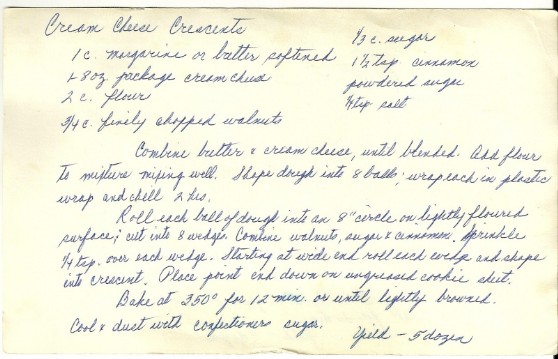 Cream Cheese Crescents
1 c. margarine or butter softened
1-8 oz package cream cheese
2 c. flour
3/4 c. finely chopped walnuts
1/3 c. sugar
1 1/2 tsp. cinnamon
powdered sugar
1/4 tsp salt
Combine butter & cream cheese, until blended. Add flour
to mixture mixing well. Shape dough into 8 balls; wrap each in plastic
wrap and chill 2 hrs.
Roll each ball of dough into an 8" circle on lightly floured
surface; cut into 8 wedges. Combine walnuts, sugar & cinnamon. Sprinkle
1/4 tsp. over each wedge. Starting at wide end roll each wedge and shape
into crescent. Place point end down on ungreased cookie sheet.
Bake at 350° for 12 min. or until lightly browned.
Cool & dust with confectioners sugar.
Yield - 5 dozen